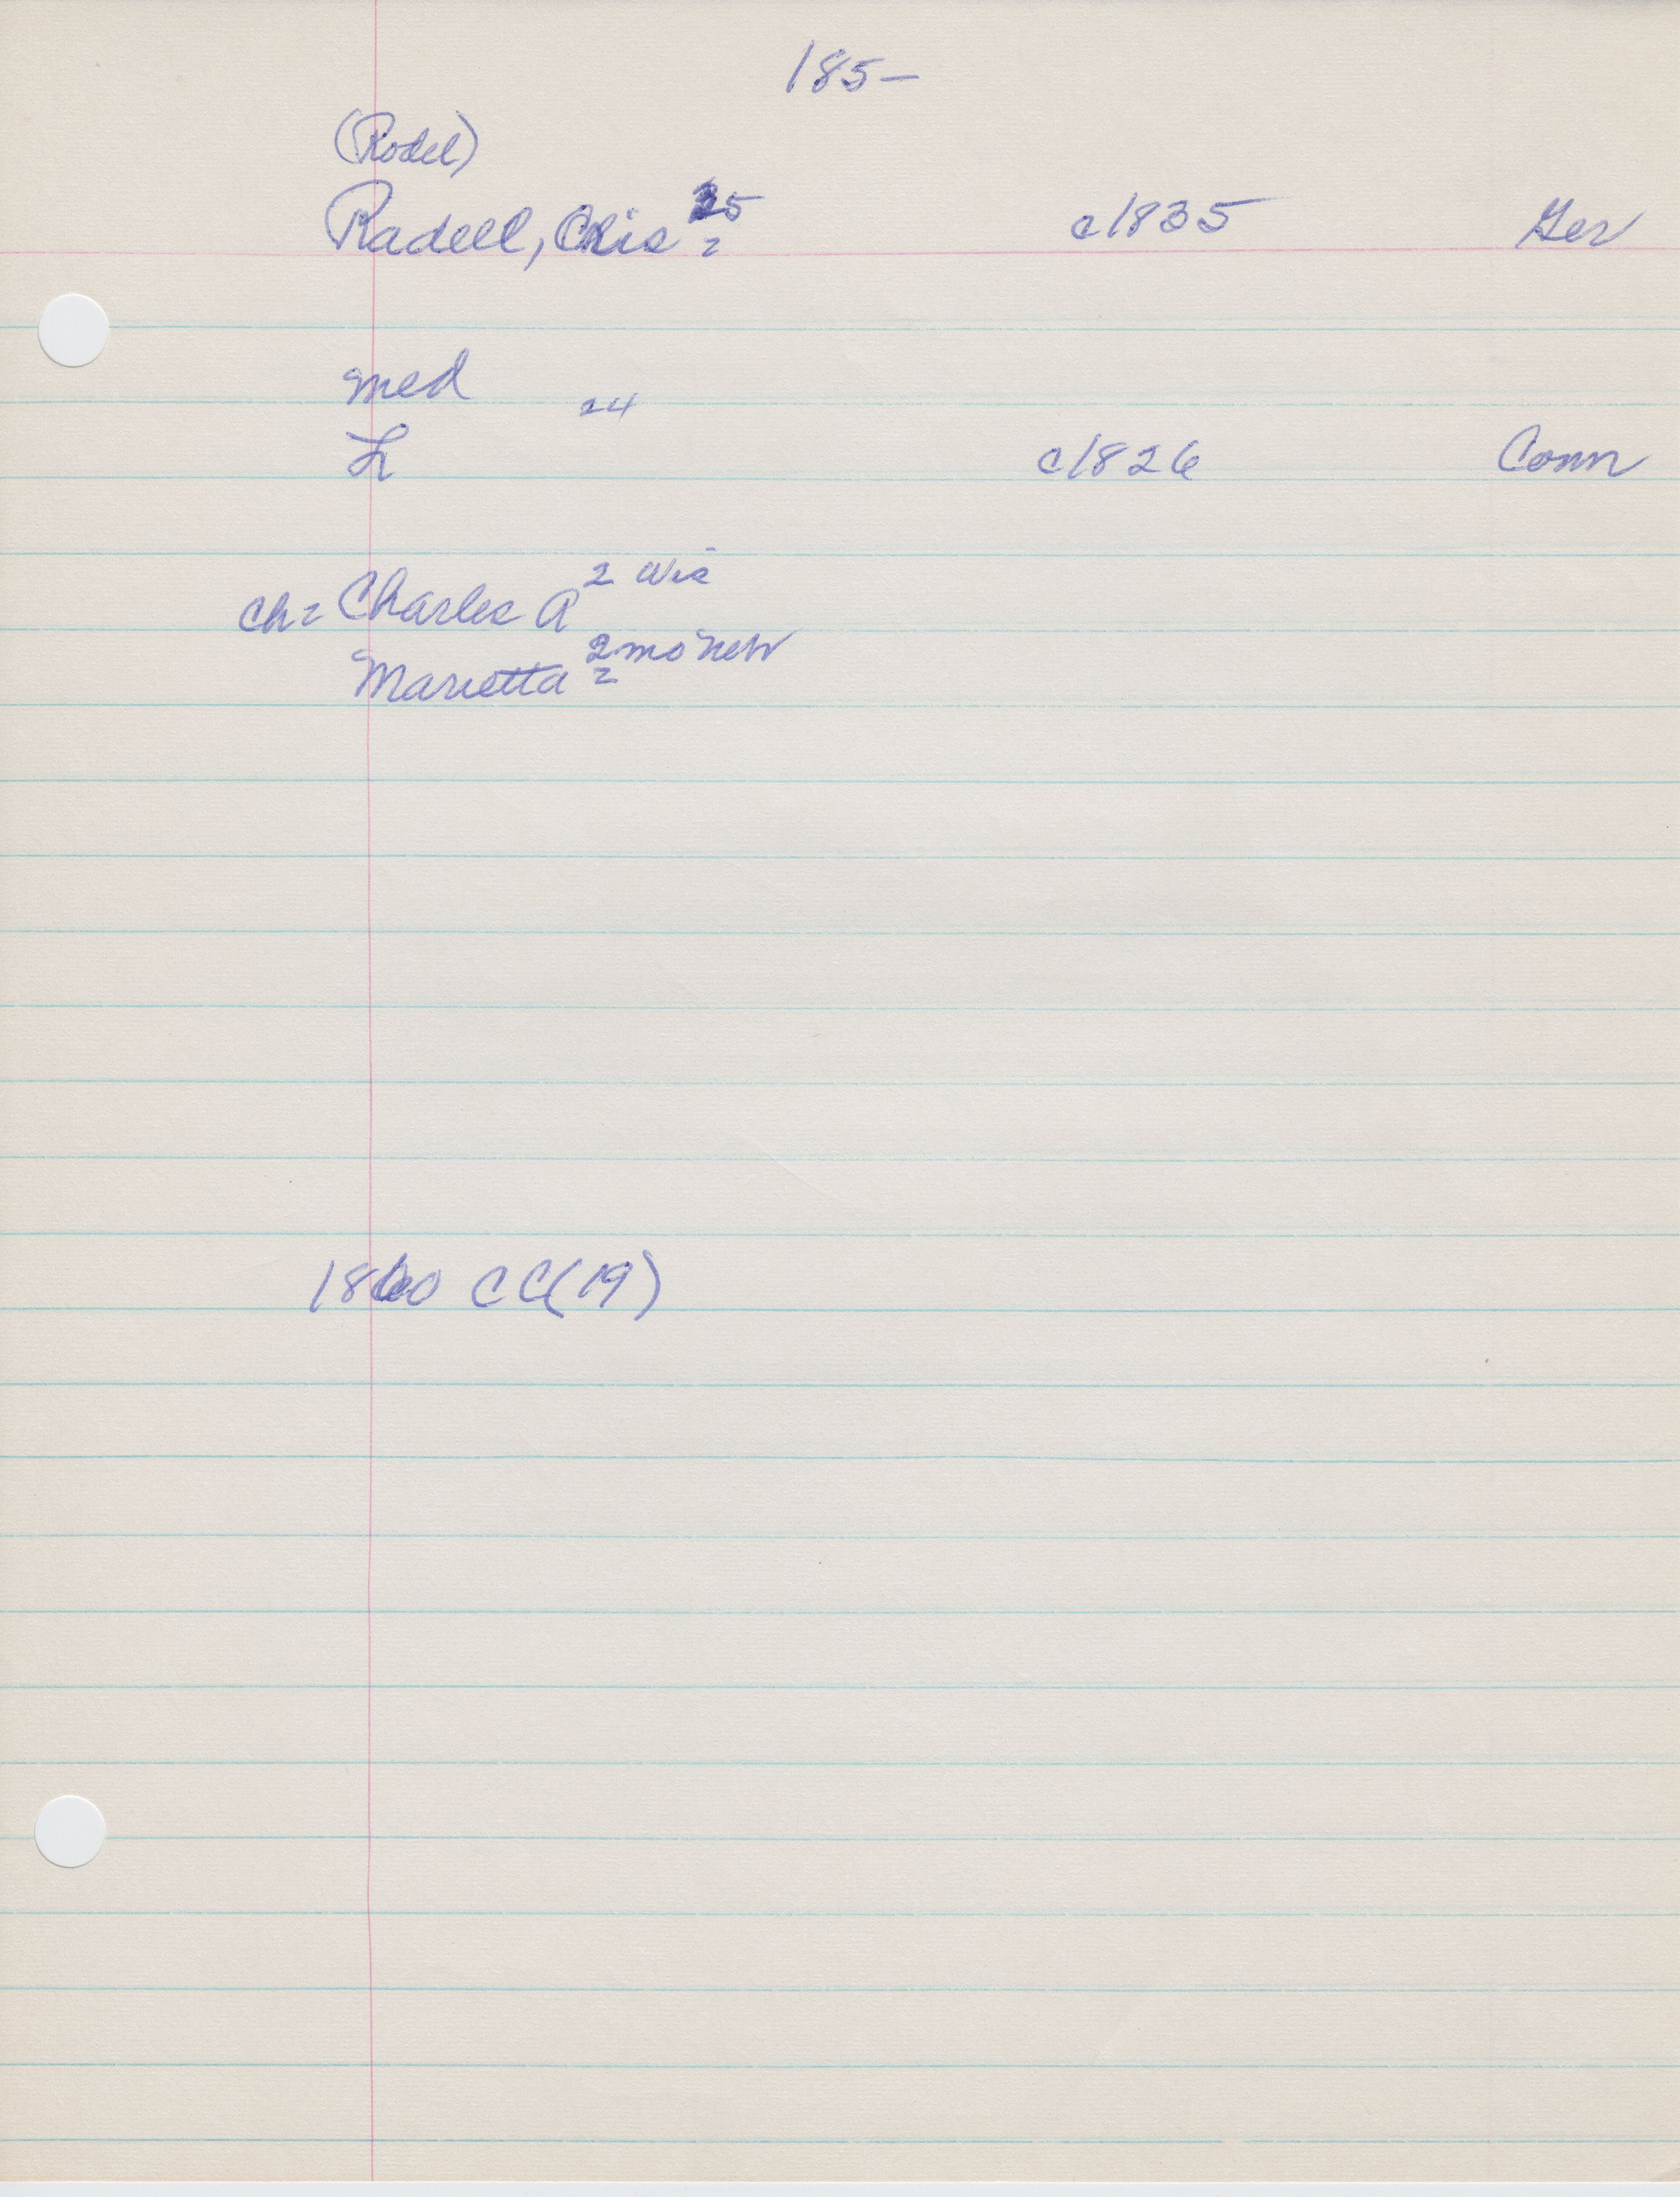 185-
(Rodel)
Radell, Chis 25 = c1835 Ger
med
24
L c1826 Conn
ch = Charles A 2 Wis
Marietta 2 mo Neb =
1860 CC (19)